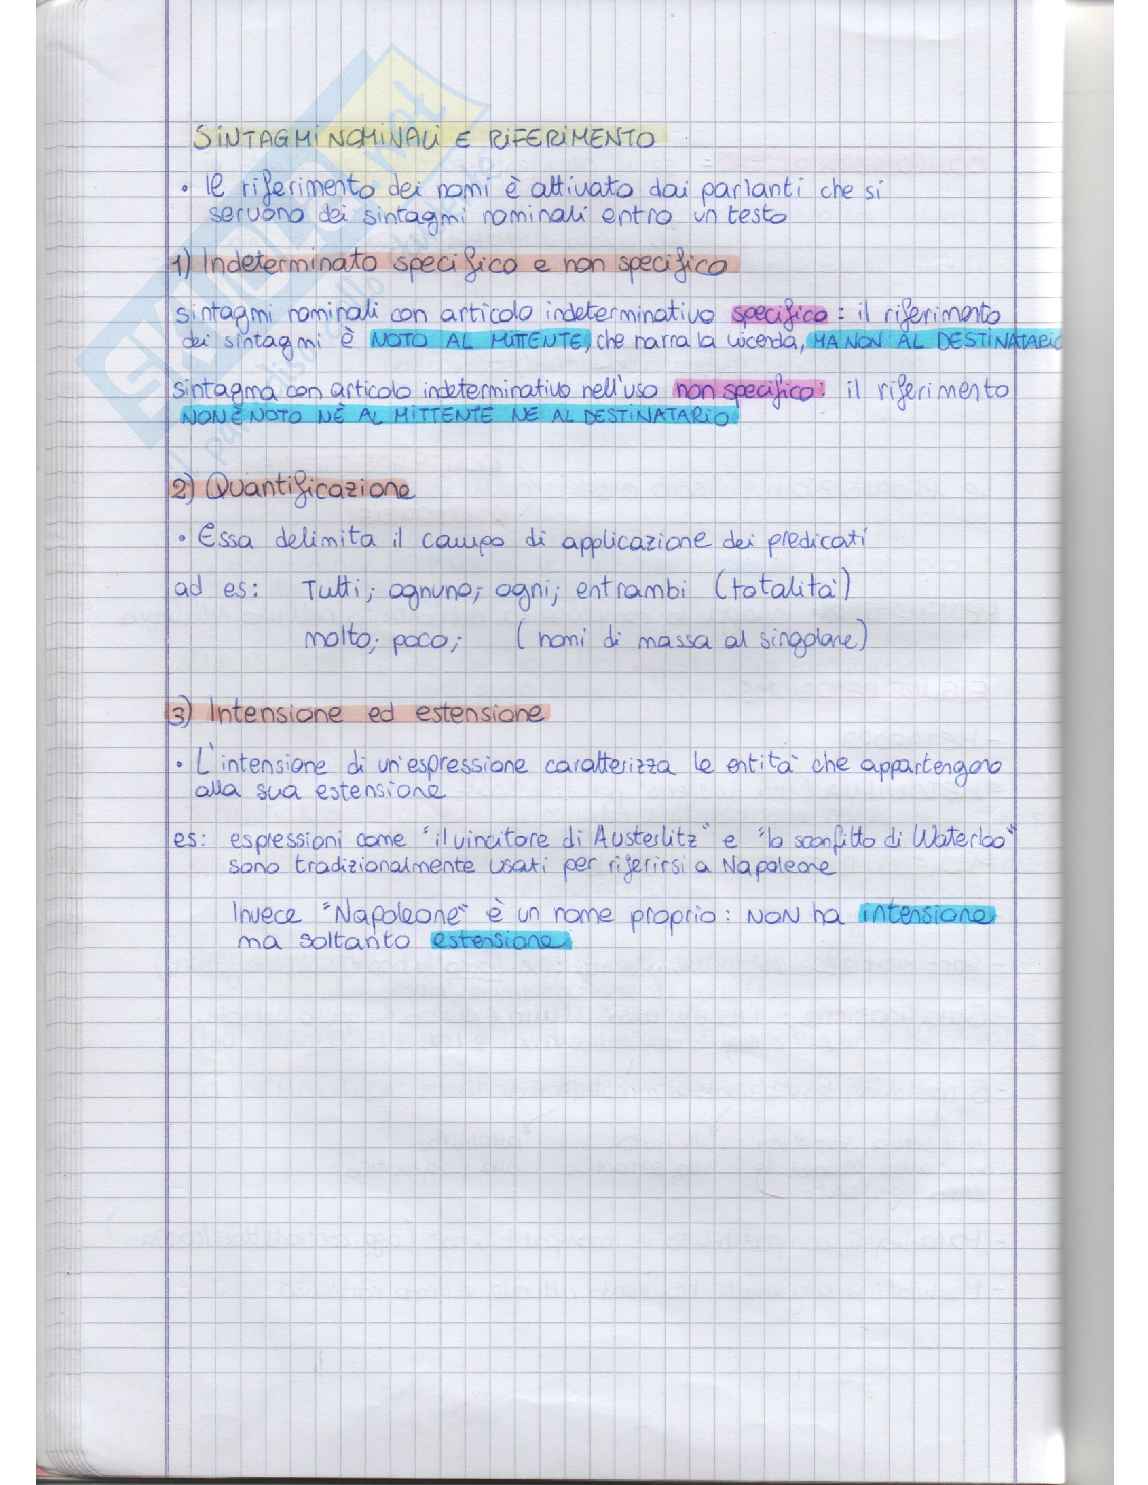 SINTAGMI NOMINALI E RIFERIMENTO
• Il riferimento dei nomi è attivato dai parlanti che si
servono dei sintagmi nominali entro un testo
1) Indeterminato specifico e non specifico
sintagmi nominali con articolo indeterminativo specifico: il riferimento
dei sintagmi è NOTO AL MITTENTE, che narra la vicenda, MA NON AL DESTINATARIO
sintagma con articolo indeterminativo nell'uso non specifico: il riferimento
NON È NOTO NÈ AL MITTENTE NE AL DESTINATARIO
2) Quantificazione
• Essa delimita il campo di applicazione dei predicati
ad es: Tutti; ognuno; ogni; entrambi (totalità)
molto; poco; (nomi di massa al singolare)
3) Intensione ed estensione
• L'intensione di un'espressione caratterizza le entità che appartengono
alla sua estensione
es: espressioni come "il vincitore di Austerlitz" e "lo sconfitto di Waterloo"
sono tradizionalmente usati per riferirsi a Napoleone
Invece "Napoleone" è un nome proprio: NON ha intensione
ma soltanto estensione
SKUOLA.net